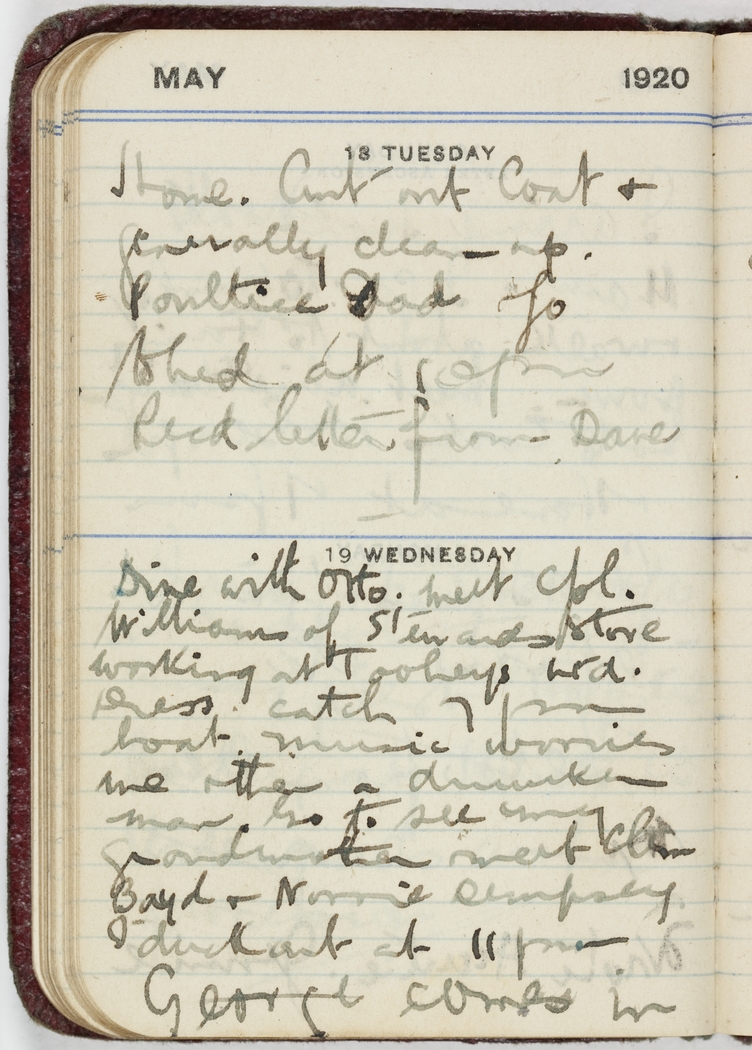 MAY 1920
18 TUESDAY
Home. Cut out Coat &
generally clean up.
Poultice Dad Go
to bed at 10 pm
Recd letter from Dave
19 WEDNESDAY
Dine with Otto. meet Cpl.
Williams of Stewards Store
working at Tooheys Ltd.
Dress. catch 7 pm
boat. music worries
me other a drunken
man. Go to see my
grandmother meet Clem
Boyd & Norrie Dempsey.
I duck out at 11 pm
George comes in